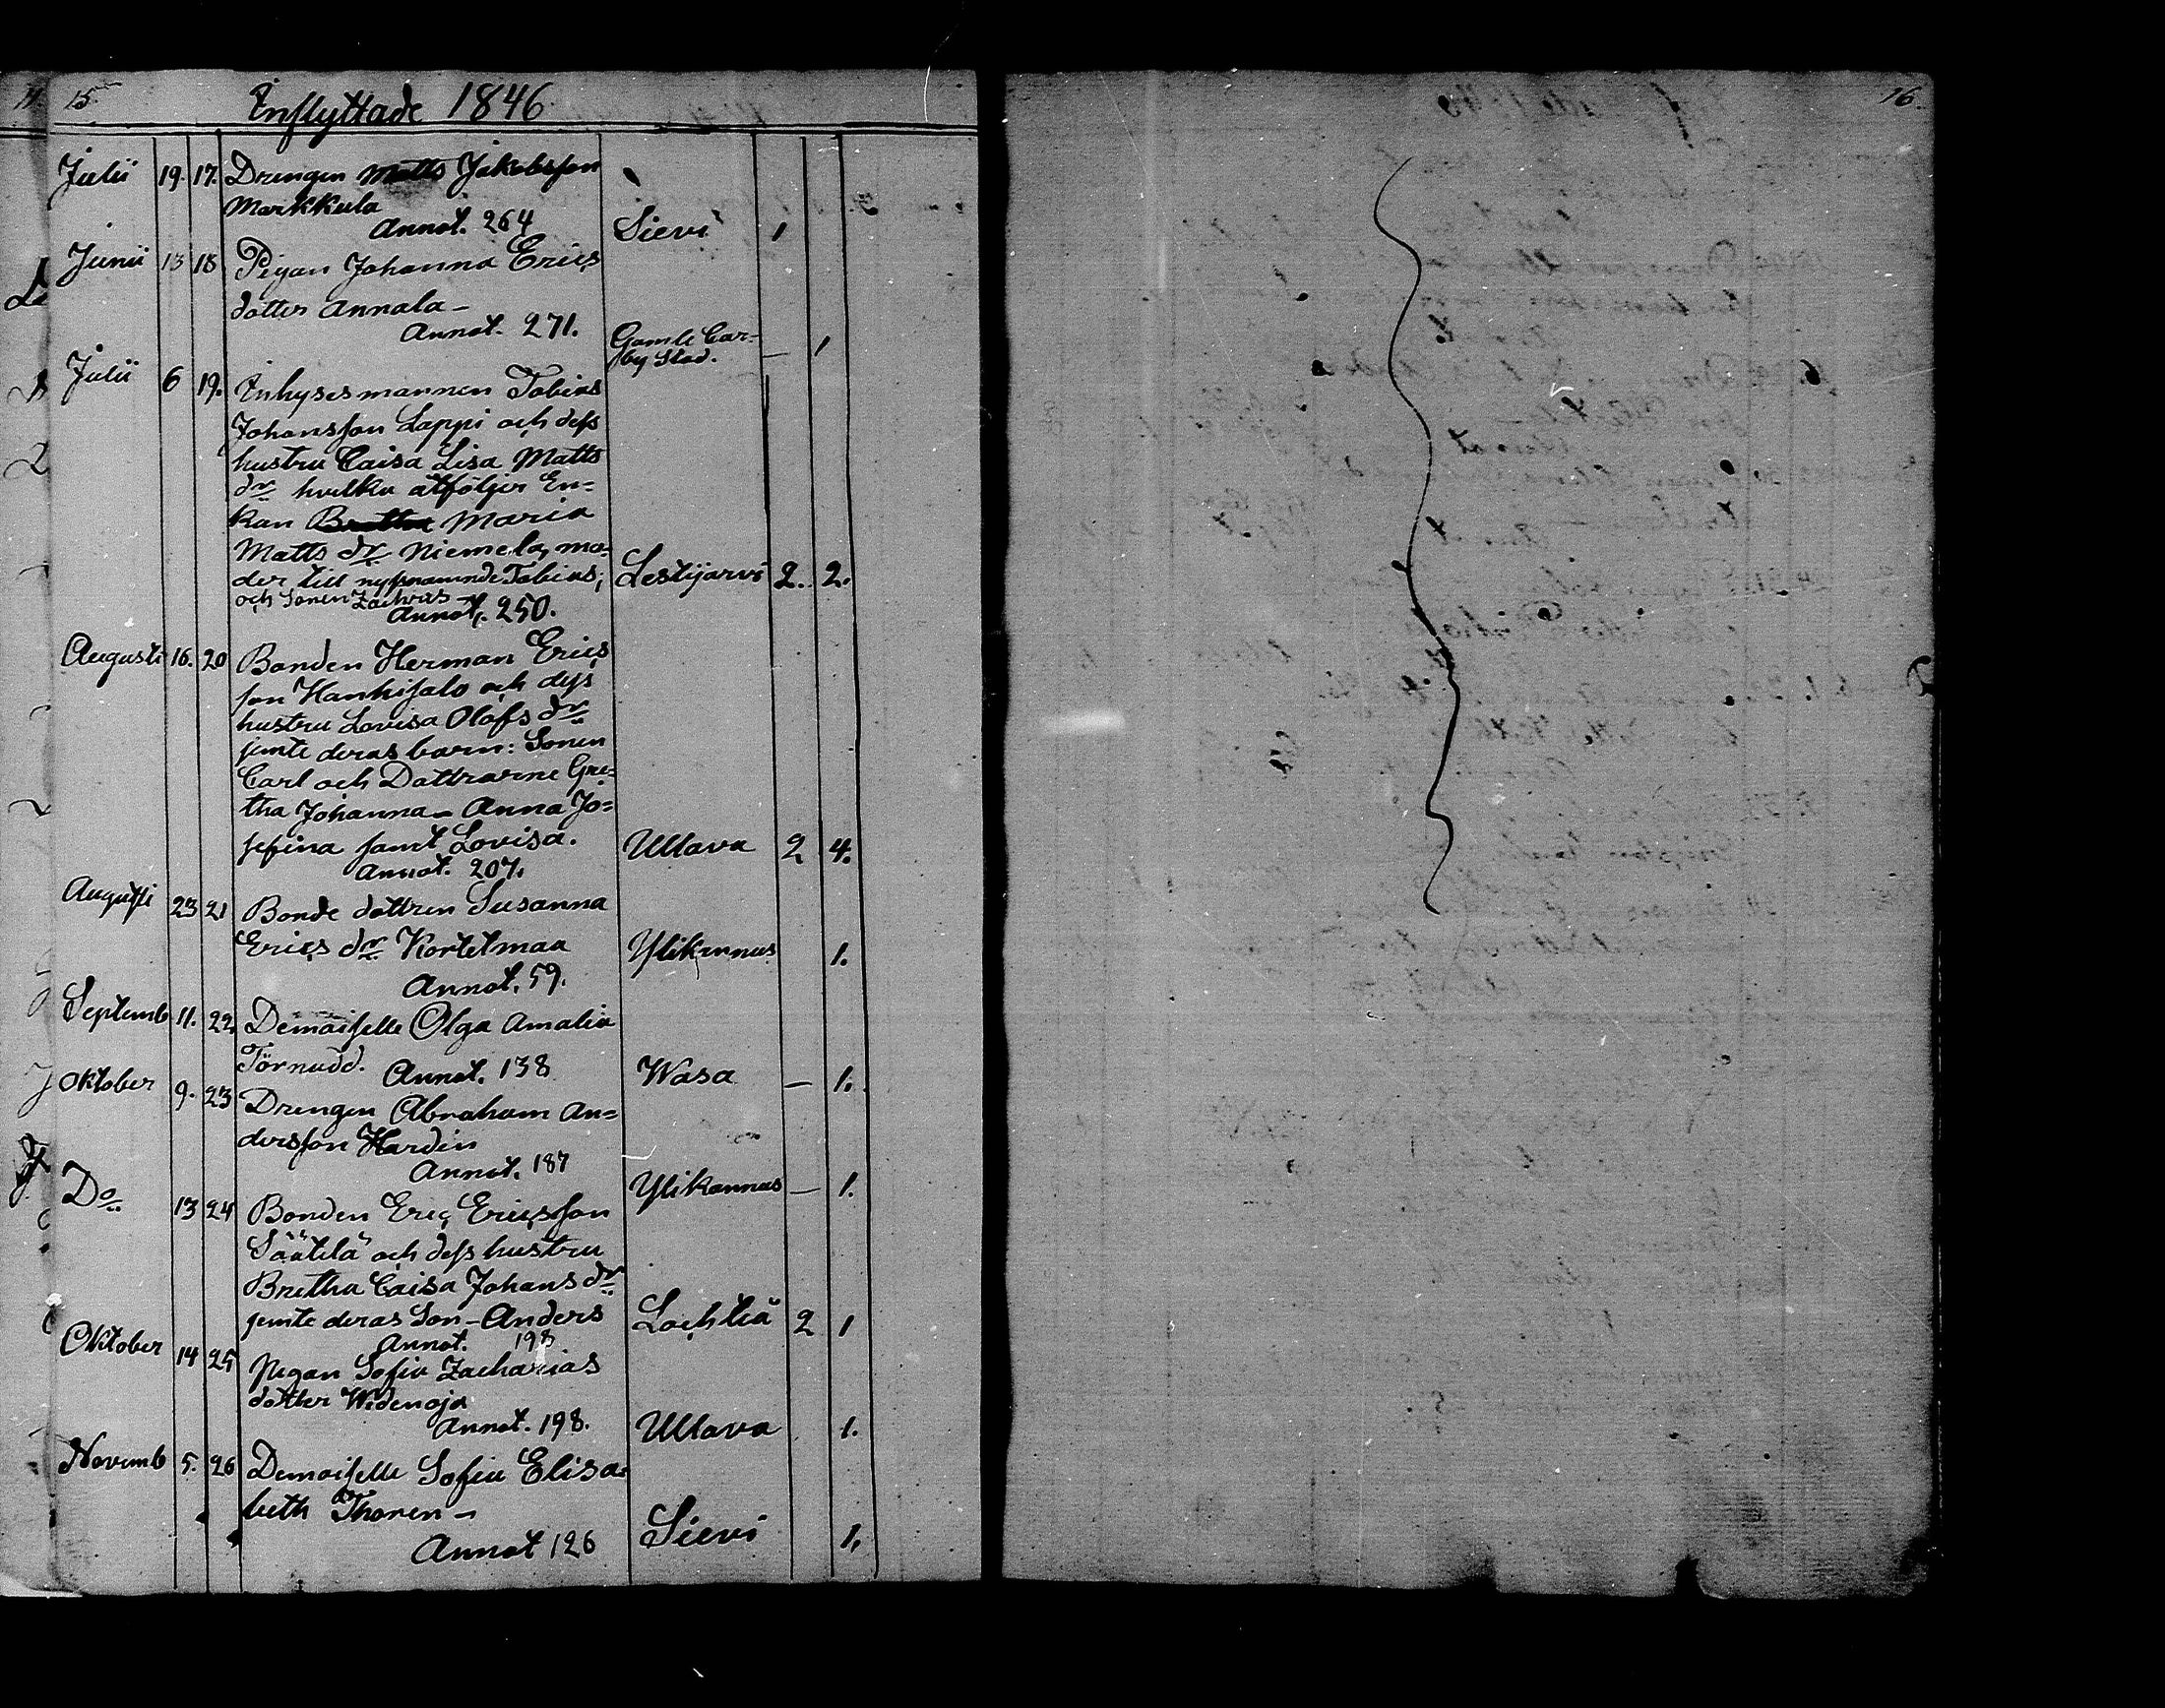 15
Inflyttade 1846
Julii 19. 17. Drengen Matts Jakobsson
Markkula
Annot. 264 Sievi 1
Junii 13 18 Pigan Johanna Erics
dotter Annala –
Annot. 271. Gamle Car-
by Stad. — 1
Julii 6 19. Inhysesmannen Tobias
Johansson Lappi och dess
hustru Caisa Lisa Matts
dr hvilka åtföljer En=
kan Maria
Matts dr Niemelä, mo=
der till nyssnämnde Tobias;
och Sonen Zachris –
Annot. 250. Lestijärvi 2. 2.
Augusti 16. 20 Bonden Herman Erics
son Hankisalo och dess
hustru Lovisa Olofs dr
jemte deras barn: Sonen
Carl och Döttrarne Gre=
tha Johanna – Anna Jo=
sefina samt Lovisa. Ullava 2 4.
Annot. 207.
Augusti 23 21 Bonde dottren Susanna
Erics dr Kortetmaa Ylikannus 1.
Annot. 59.
Septemb 11. 22. Demoiselle Olga Amalia
Törnudd. Annot. 138 Wasa — 1.
Oktober 9. 23 Drengen Abraham An=
dersson Hardin
Annot. 187 Ylikannus — 1.
Do 13 24 Bonden Eric Ericsson
Säätelä och dess hustru
Bretha Caisa Johans dr
jemte deras Son – Anders Lochteå 2 1
Annot. 198
Oktober 14 25 Pigan Sofia Zacharias
dotter Widenoja
Annot. 198. Ullava 1.
Novemb 5. 26 Demoiselle Sofia Elisa=
beth Thoren –
Annot 126 Sievi 1.
16.